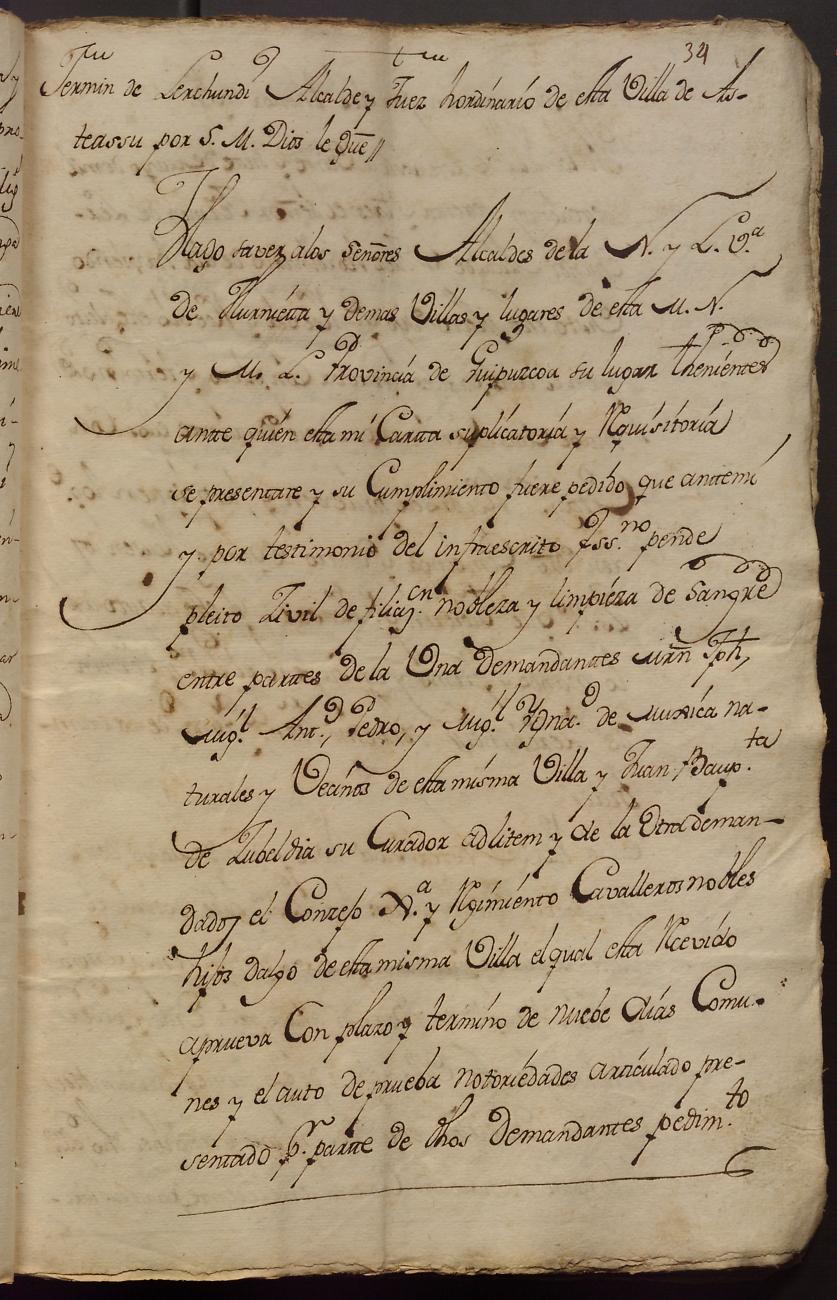 34
Fermin de Lerchundi Alcalde y Juez hordinario de esta Villa de As-
teassu por S. M. Dios le gue //
Hago saver a los Señores Alcaldes de la N. y L. V.a
de Hurnieta y demas Villas y lugares de esta M. N.
y M. L. Provincia de Guipuzcoa su lugar thenientes
antte quien esta mi Cartta suplicatoria y Requisitoria
se presentare y su Cumplimiento fuere pedido que antemi
y por testimonio del infraescrito Ess.no pende
pleito Zivil de filiaz.on nobleza y limpieza de Sangre
entre parttes de la Una Demandantes Mrñ Jph,
Mig.l Ant.o, Pedro, y Mig.l Ygna.o de Muxica na-
turales y Vecinos de esta misma Villa y Juan Baup.ta
de Zubeldia su Curador adlitem y de la Otra deman-
dados el Conzejo N.a y Regimiento Cavalleros nobles
hijos dalgo de esta misma Villa el qual esta Recevido
aprueva Con plazo y termino de nuebe dias Comu-
nes y el auto de prueba notoriedades articulado pre-
sentado p.r partte de dhos Demandantes pedim.to